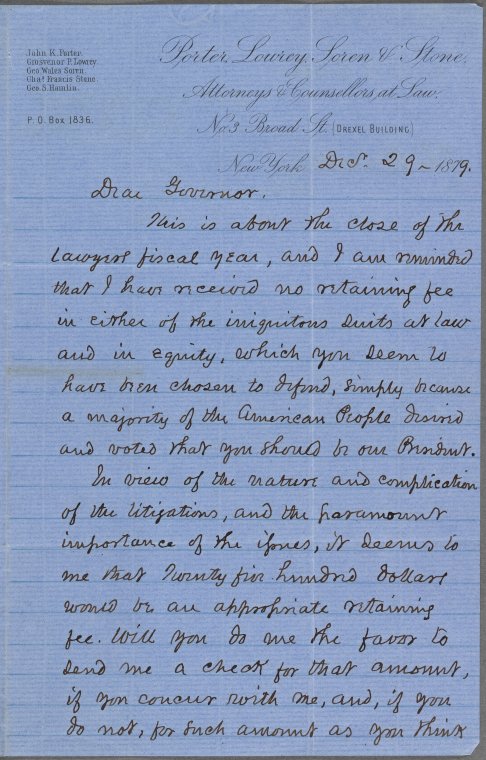 John K. Porter.
Grosvenor P. Lowrey.
Geo. Wales Soren.
Chas. Francis Stone.
Geo. S. Hamlin.
P. O. Box 1836.
Porter, Lowrey, Soren & Stone,
Attorneys & Counsellors, at Law.
No. 3 Broad St. (Drexel Building.)
New York Decr. 29 - 1879.
Dear Governor.
This is about the close of the
Lawyers fiscal year, and I am reminded
that I have received no retaining fee
in either of the iniquitous suits at law
and in equity, which you seem to
have been chosen to defend, simply because
a majority of the American People desired
and voted that you should be our President.
In view of the nature and complication
of the litigations, and the paramount
importance of the issues, it seems to
me that Twenty five hundred dollars
would be an appropriate retaining
fee. Will you do me the favor to
send me a check for that amount,
if you concur with me, and, if you
do not, for such amount as you think